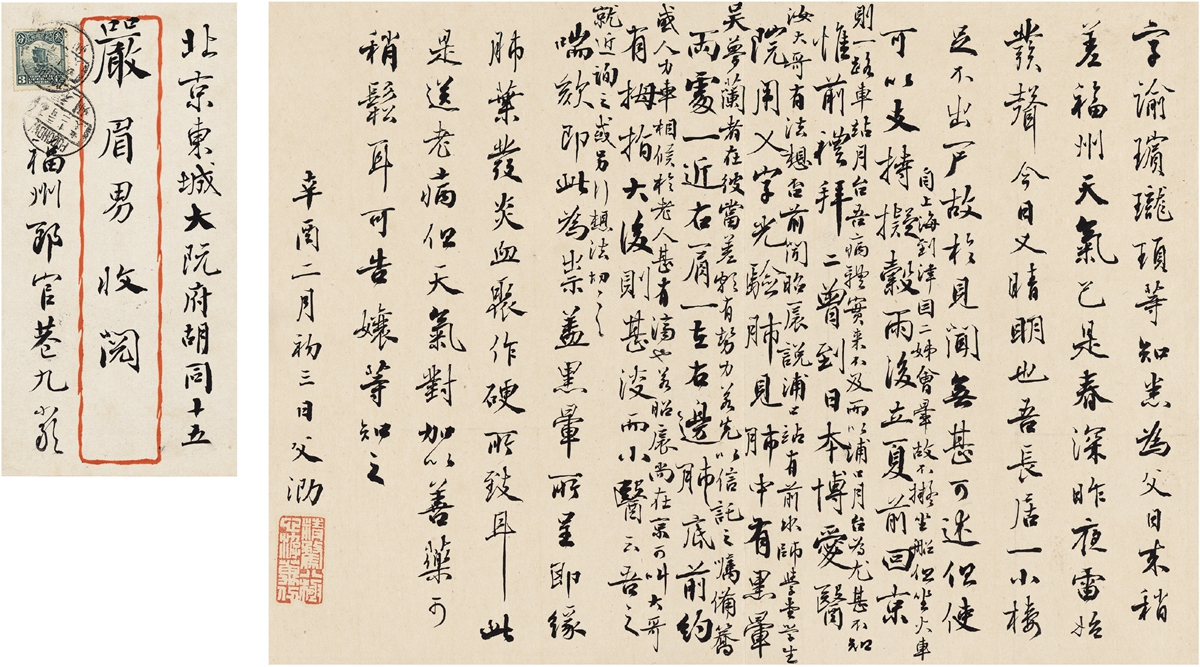 北京東城大阮府胡同十五
嚴眉男收閱
福州郎官巷九號
FOOCHOW
3
字諭璸瓏頊等知悉為父日來稍
差福州天氣已是春深昨夜雷始
發聲今日又晴明也吾長居一小樓
足不出戶故於見聞無甚可述但使
可以支搏擬穀雨後立夏前回京
自上海到津因二姊會暈故不擬坐船但坐火車
則一路車站月台吾病體實來不及而以浦口月台為尤甚不知
惟前禮拜二曾到日本博愛醫
汝大哥有法想否前聞昭扆說浦口站有前水師學堂學生
院用乂字光驗肺見肺中有黑暈
吳夢蘭者在彼當差頗有勢力若先以信託之囑備
兩處一近右肩一左右邊肺底前約
或人力車相候於老人甚有濟也若昭扆尚在京可叫大哥
有拇拍大後則甚淡而小醫云吾之
就近詢之或另行想法切切
喘欬即此為祟蓋黑暈所呈即緣
肺葉發炎血聚作硬所致耳此
是送老病但天氣對加以善藥可
稍鬆耳可告孃等知之
辛酉二月初三日父泐